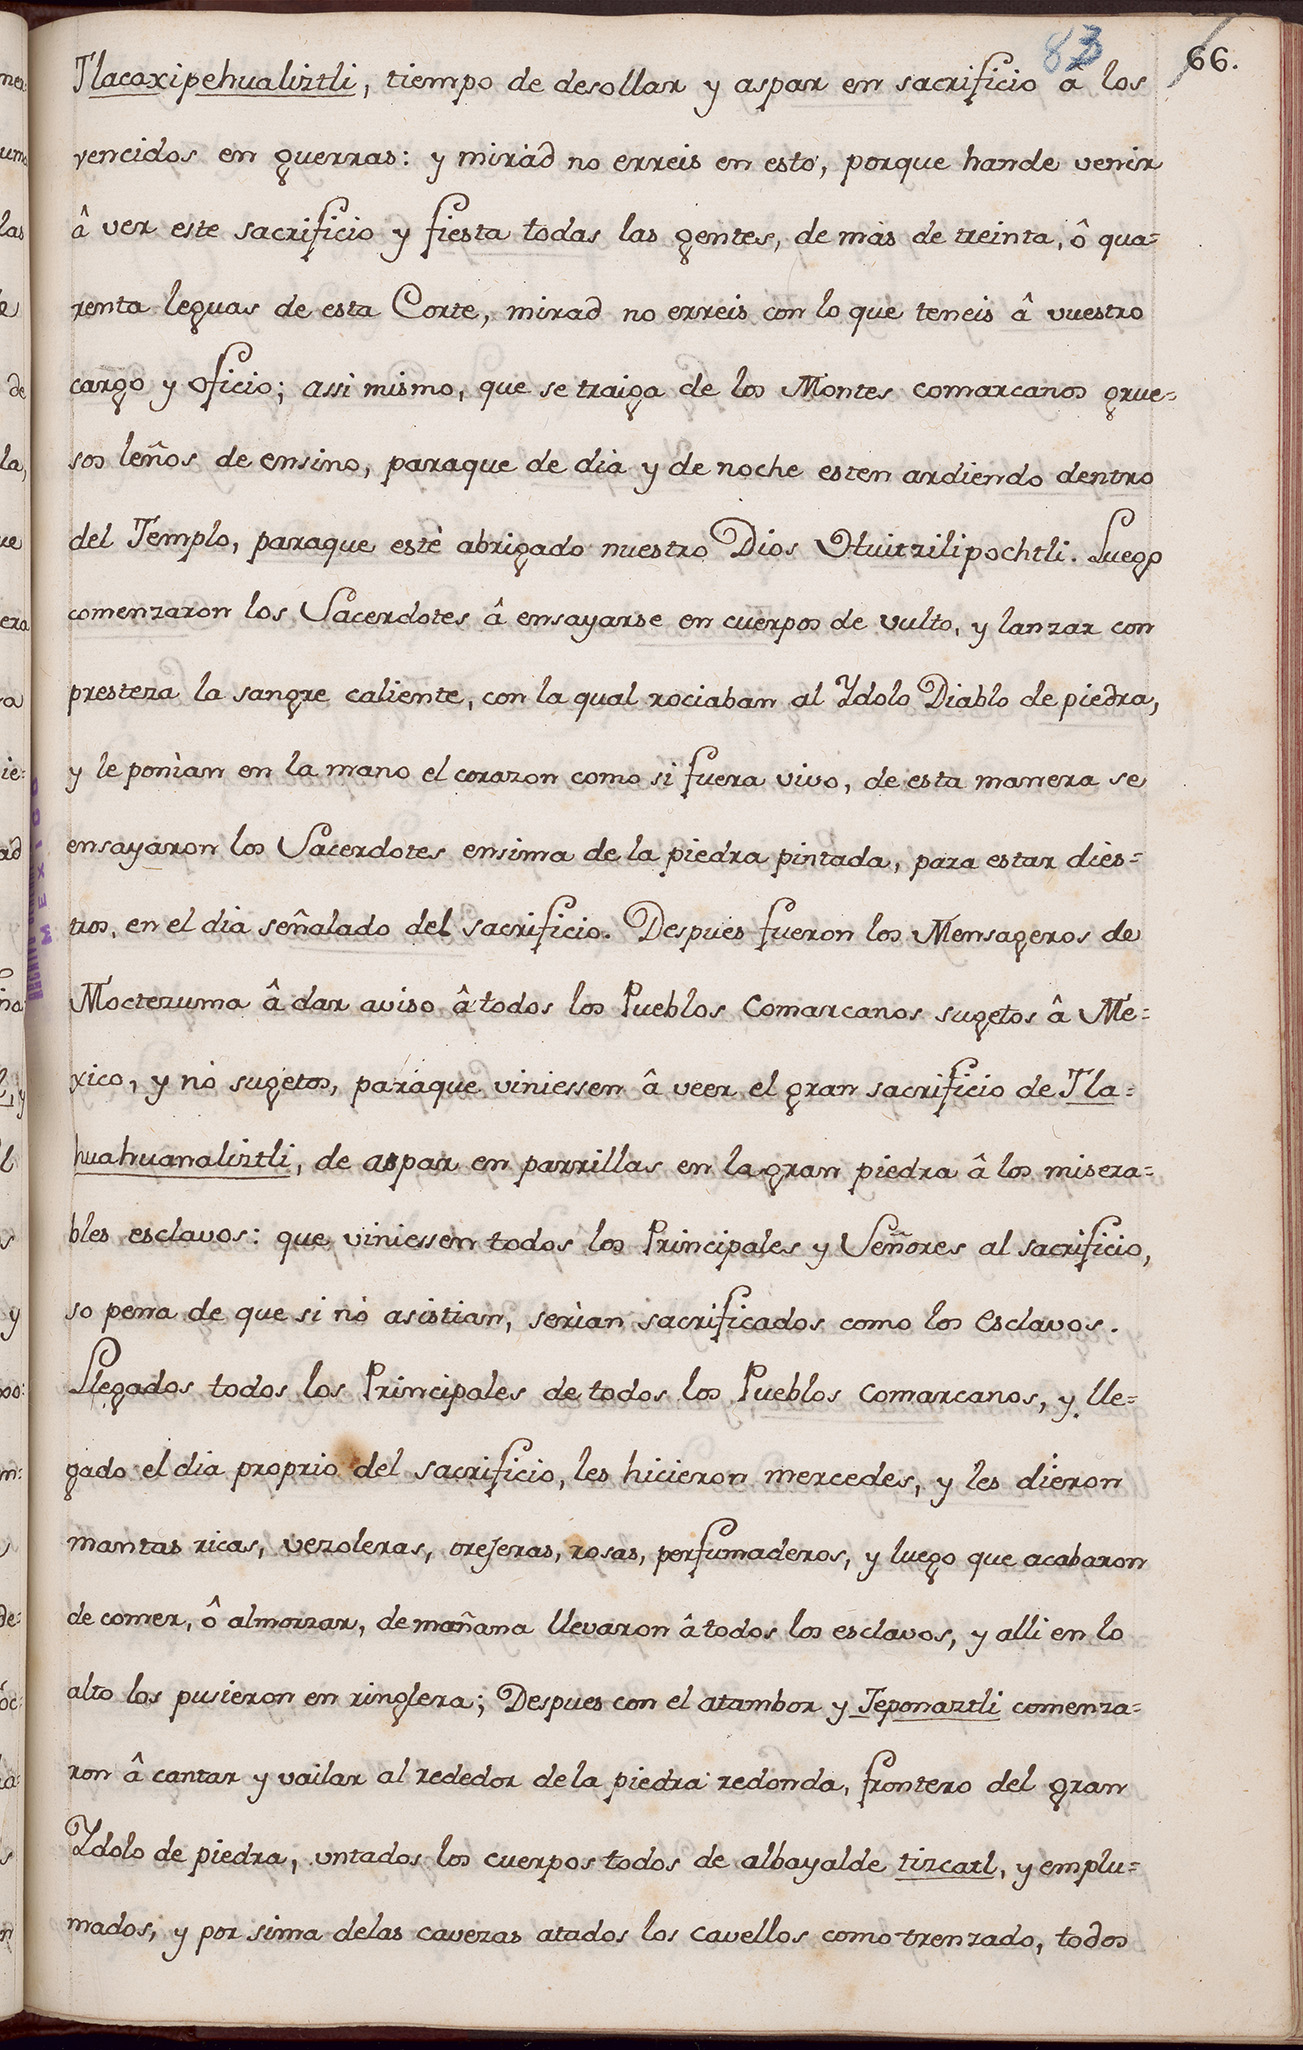 83
66.
Tlacaxipehualiztli, tiempo de desollar y aspar en sacrificio â los
vencidos en guerras: y mirad no erreis en esto, porque hande venir
â ver este sacrificio y fiesta todas las gentes, de màs de treinta, ô qua=
renta leguas de esta Corte, mirad no erreis con lo que teneis â vuestro
cargo y oficio; assi mismo, que se traiga de los Montes comarcanos grue=
sos leños de ensino, paraque de dia y de noche esten ardiendo dentro
del Templo, paraque estè abrigado nuestro Dios Huitzilipochtli. Luego
comenzaron los Sacerdotes â ensayarse en cuerpos de vulto, y lanzar con
presteza la sangre caliente, con la qual rociaban al Ydolo Diablo de piedra,
y le ponìan en la mano el corazon como si fuera vivo, de esta manera se
ensayaron los Sacerdotes ensima de la piedra pintada, para estar dies=
tros, en el dia señalado del sacrificio. Despues fueron los Mensageros de
Moctezuma â dar aviso â todos los Pueblos Comarcanos sugetos â Me=
xico, y nò sugetos, paraque viniessen â veer el gran sacrificio de Tla=
huahuanaliztli, de aspar en parrillas en la gran piedra â los misera=
bles esclavos: que viniessen todos los Principales y Señores al sacrificio,
so pena de que si nò asistian, serìan sacrificados como los esclavos.
Llegados todos los Principales de todos los Pueblos Comarcanos, y lle=
gado el dia proprio del sacrificio, les hicieron mercedes, y les dieron
mantas ricas, vezoleras, orejeras, rosas, perfumaderos, y luego que acabaron
de comer, ô almorzar, de mañana llevaron â todos los esclavos, y alli en lo
alto los pusieron en ringlera; Despues con el atambor y Teponaztli comenza=
ron â cantar y vailar al rededor de la piedra redonda, frontero del gran
Ydolo de piedra, untados los cuerpos todos de albayalde tizcatl, y emplu=
mados, y por sima delas cavezas atados los cavellos como trenzado, todos